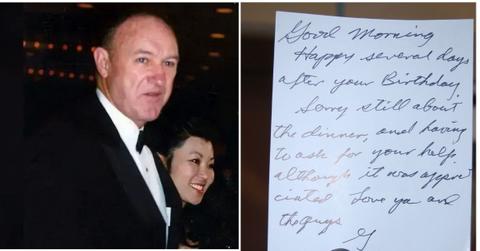 Good Morning
Happy several days
after your Birthday
Sorry still about
the dinner, and having
to ask for your help,
although it was appre
ciated Love ya and
the guys
G